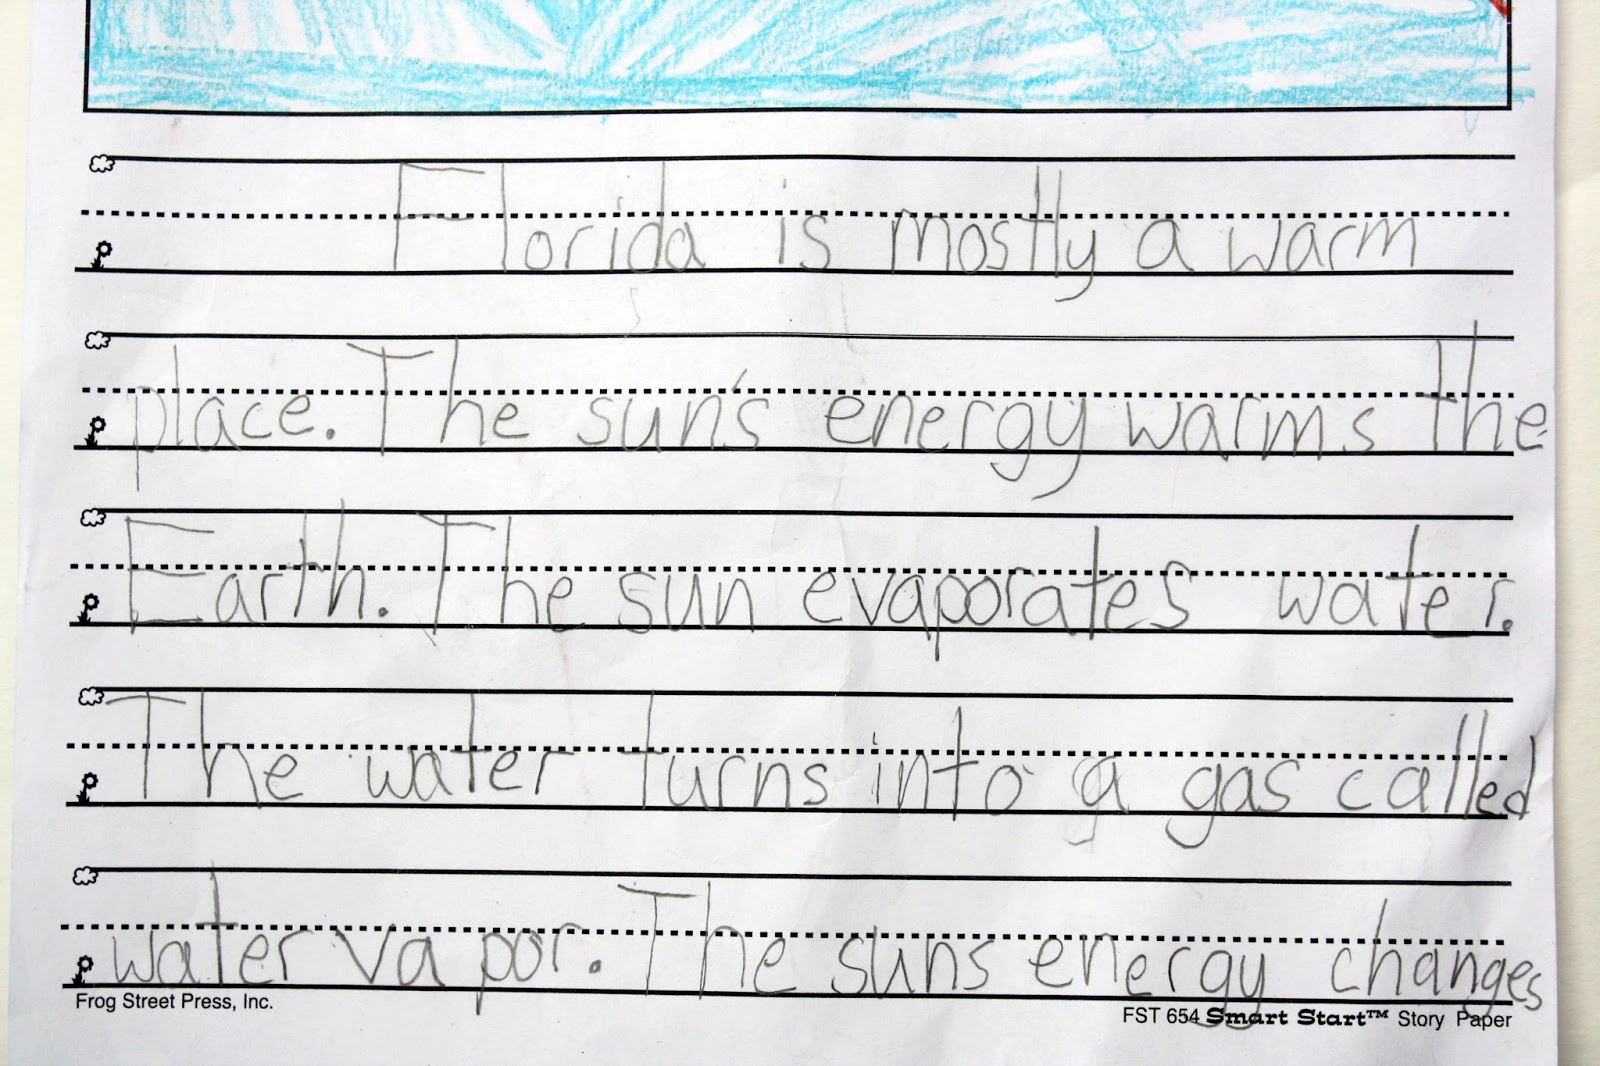 Florida is mostly a warm
place. The sun's energy warms the
Earth. The sun evaporates water.
The water turns into a gas called
water vapor. The suns energy changes
Frog Street Press, Inc.
FST 654 Smart Start™ Story Paper